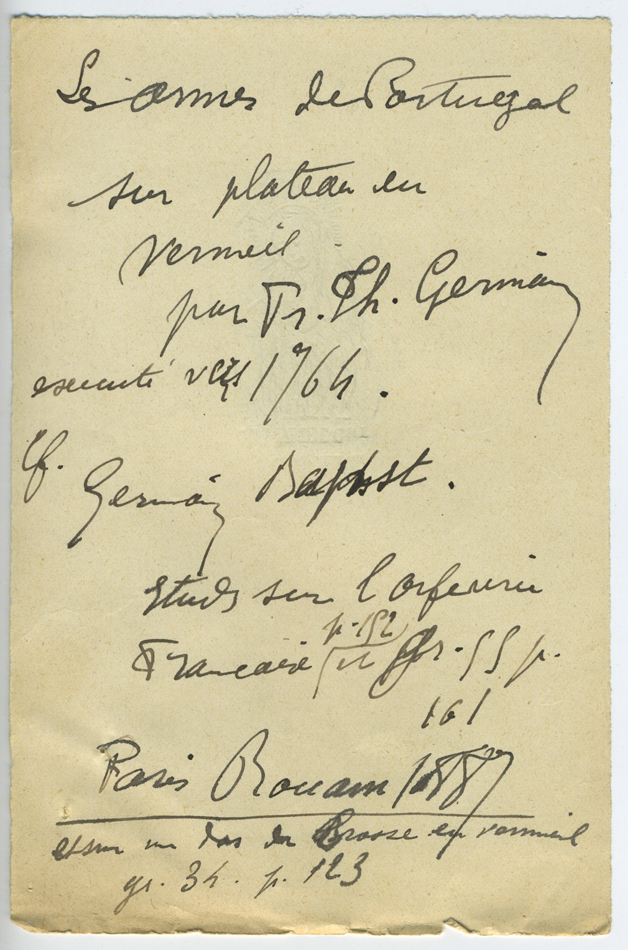 Les armes de Portugal
sur plateau en
Vermeil
par Fr. Th. Germain
executé vers 1764.
Cf.
Germain Bapst.
Etudes sur l'orfevrerie
p. 152
Francaise gr. 55 p.
161
Paris Rouam 1887
et sur un dos de Brosse en vermeil
gr. 34. p. 123